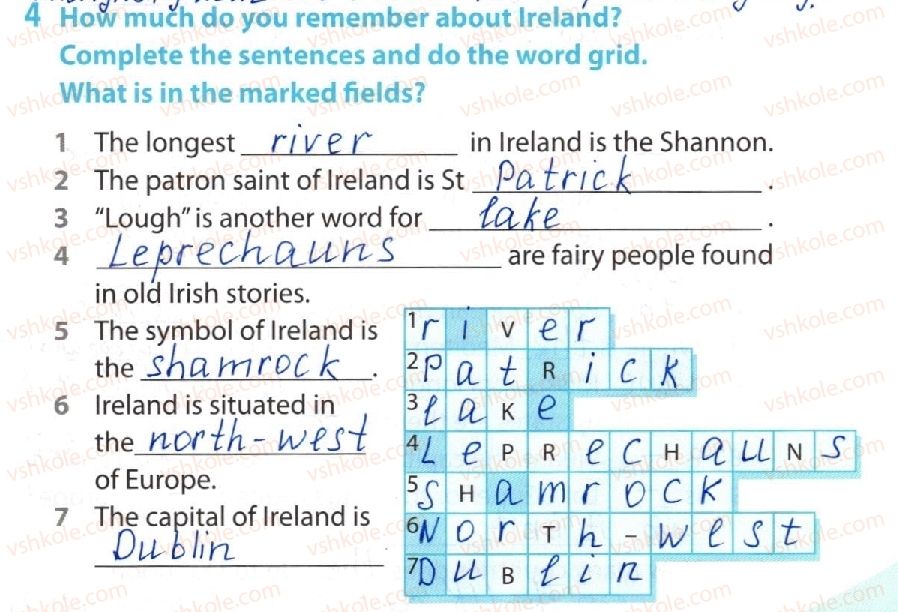 4 How much do you remember about Ireland?
Complete the sentences and do the word grid.
What is in the marked fields?
1 The longest river in Ireland is the Shannon.
2 The patron saint of Ireland is St Patrick.
3 "Lough" is another word for lake.
4 Leprechauns are fairy people found
in old Irish stories.
5 The symbol of Ireland is
the shamrock.
6 Ireland is situated in
the north-west
of Europe.
7 The capital of Ireland is
Dublin
1 r i v e r
2 P a t R i c k
3 l a K e
4 L e P R e c H a u N s
5 s H a m r o c k
6 N o r T h - w e s t
7 D u B l i n
vshkole.com